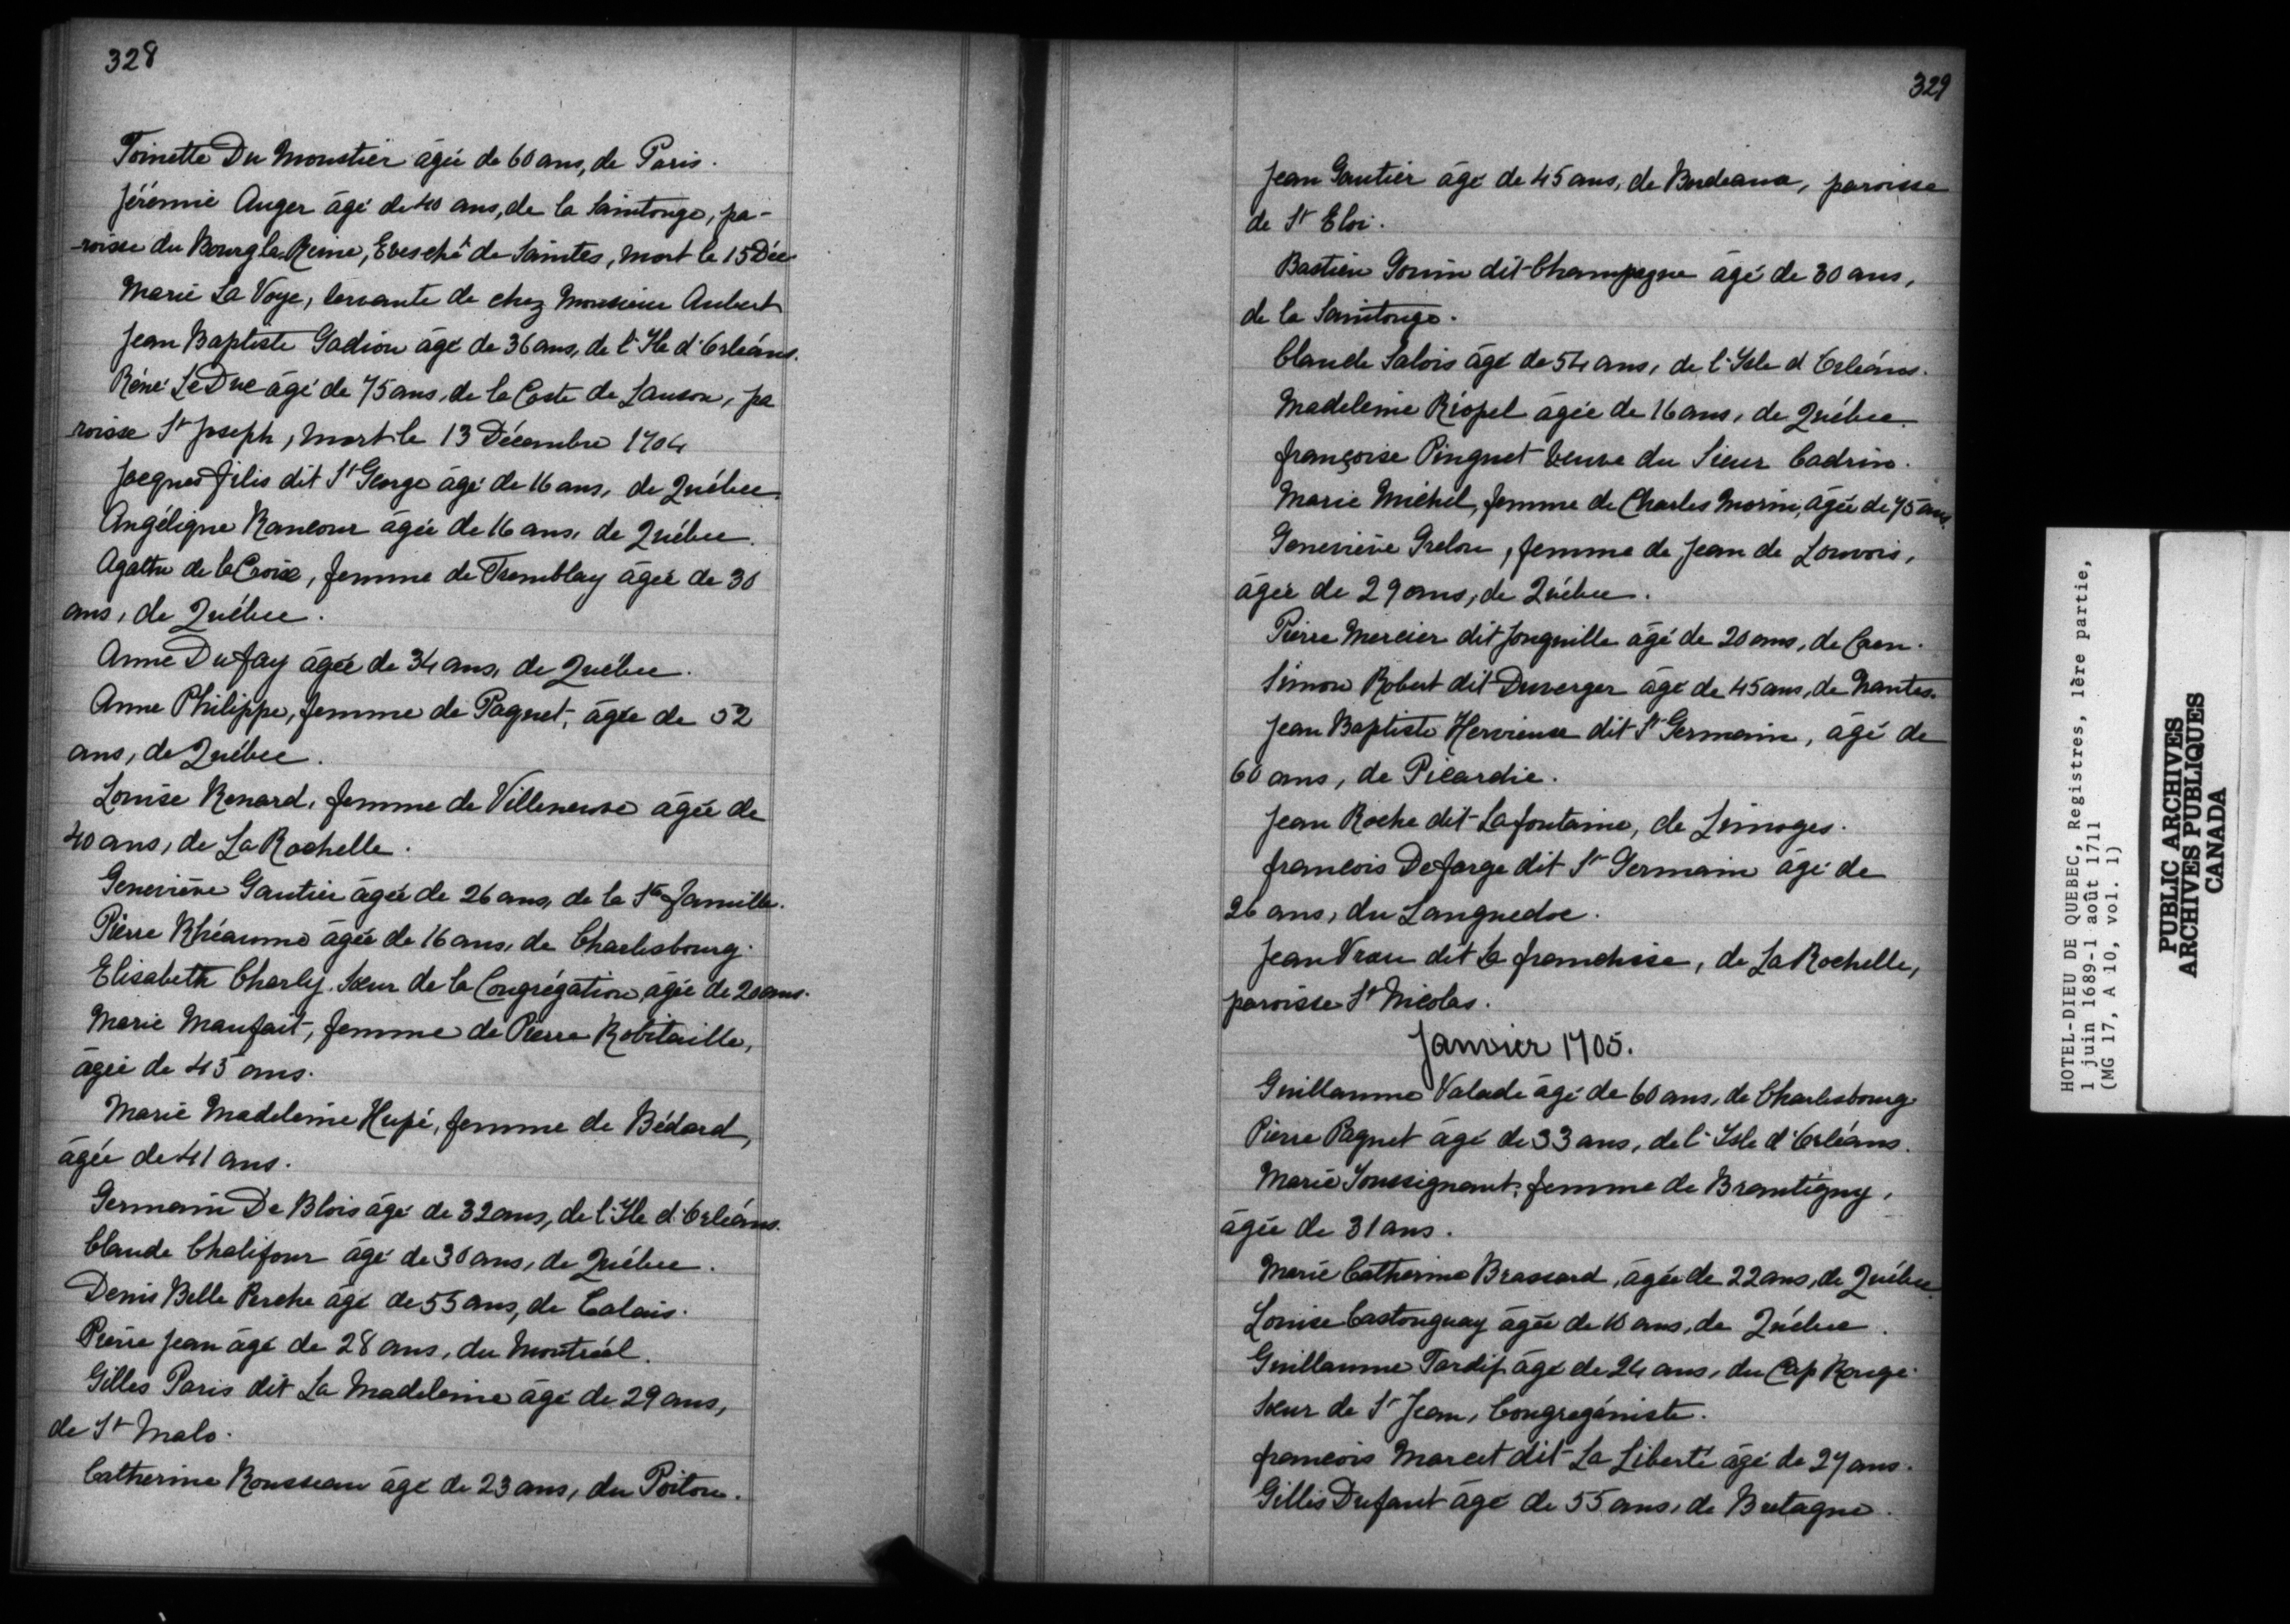 328
Toinette Du Moustier âgée de 60 ans, de Paris.
Jérémie Auger âgé de 40 ans, de la Saintonge, pa-
-roisse du Bourg la Reine, Evesché de Saintes, mort le 15 Déc
Marie La Voye, servante de chez Monsieur Aubert
Jean Baptiste Gadiou âgé de 36 ans, de l'Ile d'Orléans.
Réné Le Duc âgé de 75 ans, de la Coste de Lauson, pa
roisse St Joseph, mort le 13 Décembre 1704
Jacques filis dit St George âgé de 16 ans, de Québec.
Angélique Rancour âgée de 16 ans, de Québec.
Agathe de la Croix, femme de Tremblay âgée de 30
ans, de Québec.
Anne Du fay âgée de 34 ans, de Québec.
Anne Philippe, femme de Paquet, âgée de 52
ans, de Québec.
Louise Renard, femme de Villeneuve âgée de
40 ans, de La Rochelle.
Geneviève Gautier âgée de 26 ans, de la Ste famille.
Pierre Rhéaume âgée de 16 ans, de Charlesbourg.
Elisabeth Charly Sœur de la Congrégation, âgée de 20 ans.
Marie Maufait, femme de Pierre Robitaille,
âgée de 45 ans.
Marie Madeleine Hupé, femme de Bédard,
âgée de 41 ans.
Germain De Blois âgé de 32 ans, de l'Ile d'Orléans.
Claude Chalifour âgé de 30 ans, de Québec.
Denis Belle Perche âgé de 55 ans, de Calais.
Pierre Jean âgé de 28 ans, du Montréal.
Gilles Paris dit La Madeleine âgé de 29 ans,
de St Malo.
Catherine Rousseau âgé de 23 ans, du Poitou.
329
Jean Gautier âgé de 45 ans, de Bordeaux, paroisse
de St Eloi.
Bastien Gouin dit Champagne âgé de 30 ans,
de la Saintonge.
Claude Salois âgé de 54 ans, de l'Isle d'Orléans.
Madeleine Riopel âgée de 16 ans, de Québec.
françoise Pinguet veuve du Sieur Cadrin.
Marie Michel, femme de Charles Morin, âgée de 75 ans.
Geneviève Grelon, femme de Jean de Louvois,
âgée de 29 ans, de Québec.
Pierre Mercier dit Jonquille âgé de 20 ans, de Caen.
Simon Robert dit Duverger âgé de 45 ans, de Nantes.
Jean Baptiste Hervieux dit St Germain, âgé de
60 ans, de Picardie.
Jean Roche dit Lafontaine, de Limoges.
francois Defarge dit St Germain âgé de
26 ans, du Languedoc.
Jean Vrau dit La franchise, de La Rochelle,
paroisse St Nicolas.
Janvier 1705.
Guillaume Valade âgé de 60 ans, de Charlesbourg
Pierre Paquet âgé de 33 ans, de l'Isle d'Orléans.
Marie Soussignant, femme de Brantigny,
âgée de 31 ans.
Marie Catherine Brassard, âgée de 22 ans, de Québec.
Louise Castonguay âgée de 10 ans, de Québec.
Guillaume Tardif âgé de 24 ans, du Cap Rouge.
Sœur de St Jean, Congregéniste.
francois Marcet dit La Liberté âgé de 27 ans.
Gilles Dufaut âgé de 55 ans, de Bretagne.
HOTEL-DIEU DE QUEBEC, Registres, 1ère partie,
1 juin 1689-1 août 1711
(MG 17, A 10, vol. 1)
PUBLIC ARCHIVES
ARCHIVES PUBLIQUES
CANADA